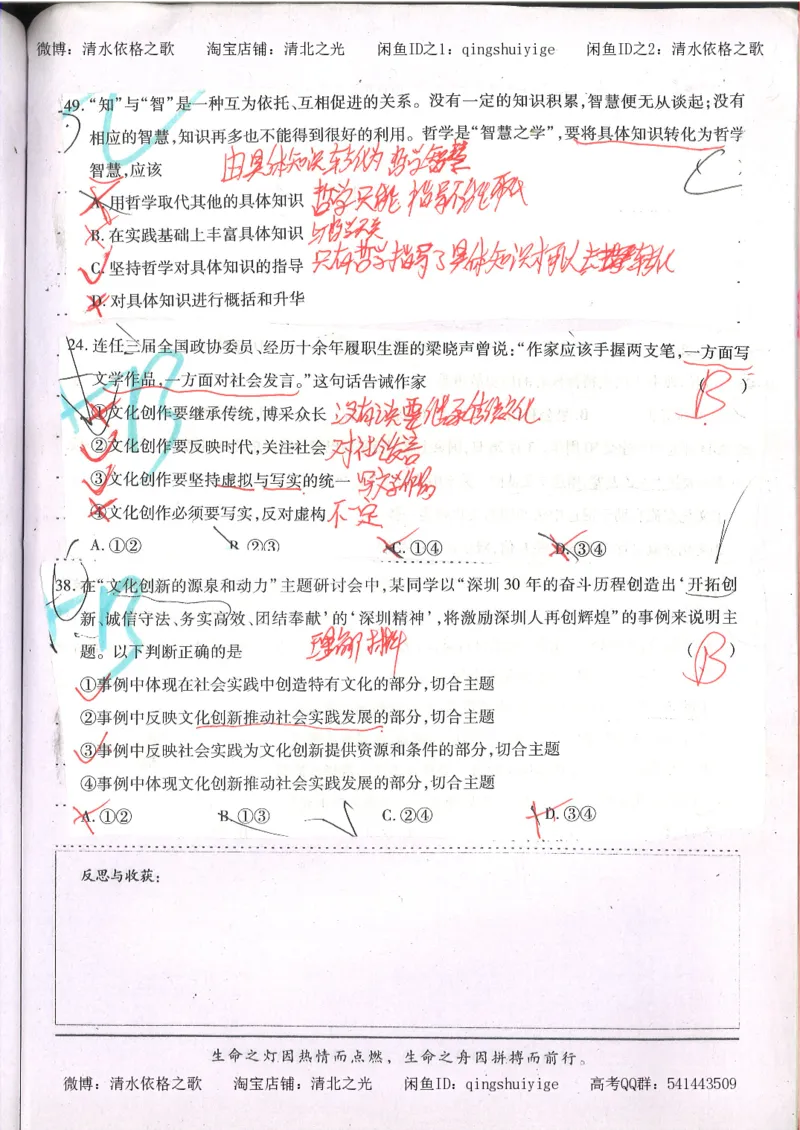 微博：清水依格之歌 淘宝店铺：清北之光 闲鱼ID之1：qingshuiyige 闲鱼ID之2：清水依格之歌
49.“知”与“智”是一种互为依托、互相促进的关系。没有一定的知识积累,智慧便无从谈起;没有
相应的智慧,知识再多也不能得到很好的利用。哲学是“智慧之学”,要将具体知识转化为哲学
智慧,应该
由具体知识转化为哲学智慧
C
A.用哲学取代其他的具体知识
哲学只能指导不能取代
B.在实践基础上丰富具体知识
与哲学无关
C.坚持哲学对具体知识的指导
只有哲学指导了具体知识才可以去转化
D.对具体知识进行概括和升华
24.连任三届全国政协委员、经历十余年履职生涯的梁晓声曾说:“作家应该手握两支笔,一方面写
文学作品,一方面对社会发言。”这句话告诫作家 ( B )
①文化创作要继承传统,博采众长 没有谈要继承传统文化
②文化创作要反映时代,关注社会 对社会发言
③文化创作要坚持虚拟与写实的统一 写文学作品
④文化创作必须要写实,反对虚构 不一定
A.①② B.②③ C.①④ D.③④
38.在“文化创新的源泉和动力”主题研讨会中,某同学以“深圳30年的奋斗历程创造出‘开拓创
新、诚信守法、务实高效、团结奉献’的‘深圳精神’,将激励深圳人再创辉煌”的事例来说明主
题。以下判断正确的是 理解材料 ( B )
①事例中体现在社会实践中创造特有文化的部分,切合主题
②事例中反映文化创新推动社会实践发展的部分,切合主题
③事例中反映社会实践为文化创新提供资源和条件的部分,切合主题
④事例中体现文化创新推动社会实践发展的部分,切合主题
A.①② B.①③ C.②④ D.③④
反思与收获:
生命之灯因热情而点燃，生命之舟因拼搏而前行。
微博：清水依格之歌 淘宝店铺：清北之光 闲鱼ID：qingshuiyige 高考QQ群：541443509